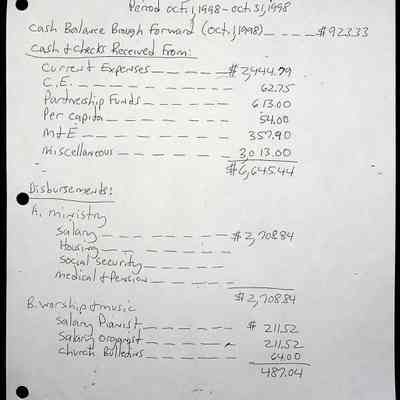 Period oct. 1, 1998 - oct 31, 1998
Cash Balance Brough Forward (oct. 1, 1998) _ _ _ _ $923.33
Cash & checks Received From:
Current Expenses _ _ _ _ _ $2,544.79
C.E. _ _ _ _ _ _ _ 62.75
Partnership Funds _ _ _ _ 613.00
Per capita _ _ _ _ _ 54.00
M&E _ _ _ _ _ _ 357.90
Miscellaneous _ _ _ _ _ 3,013.00
$6,645.44
Disbursements:
A. ministry
Salary _ _ _ _ _ _ $2,708.84
Housing _ _ _ _ _ _
Social security _ _ _ _ _
medical & Pension _ _ _ _
$2,708.84
B. worship & music
Salary Pianist _ _ _ _ $ 211.52
Salary organist _ _ _ _ 211.52
Church Bulletins _ _ _ _ 64.00
487.04